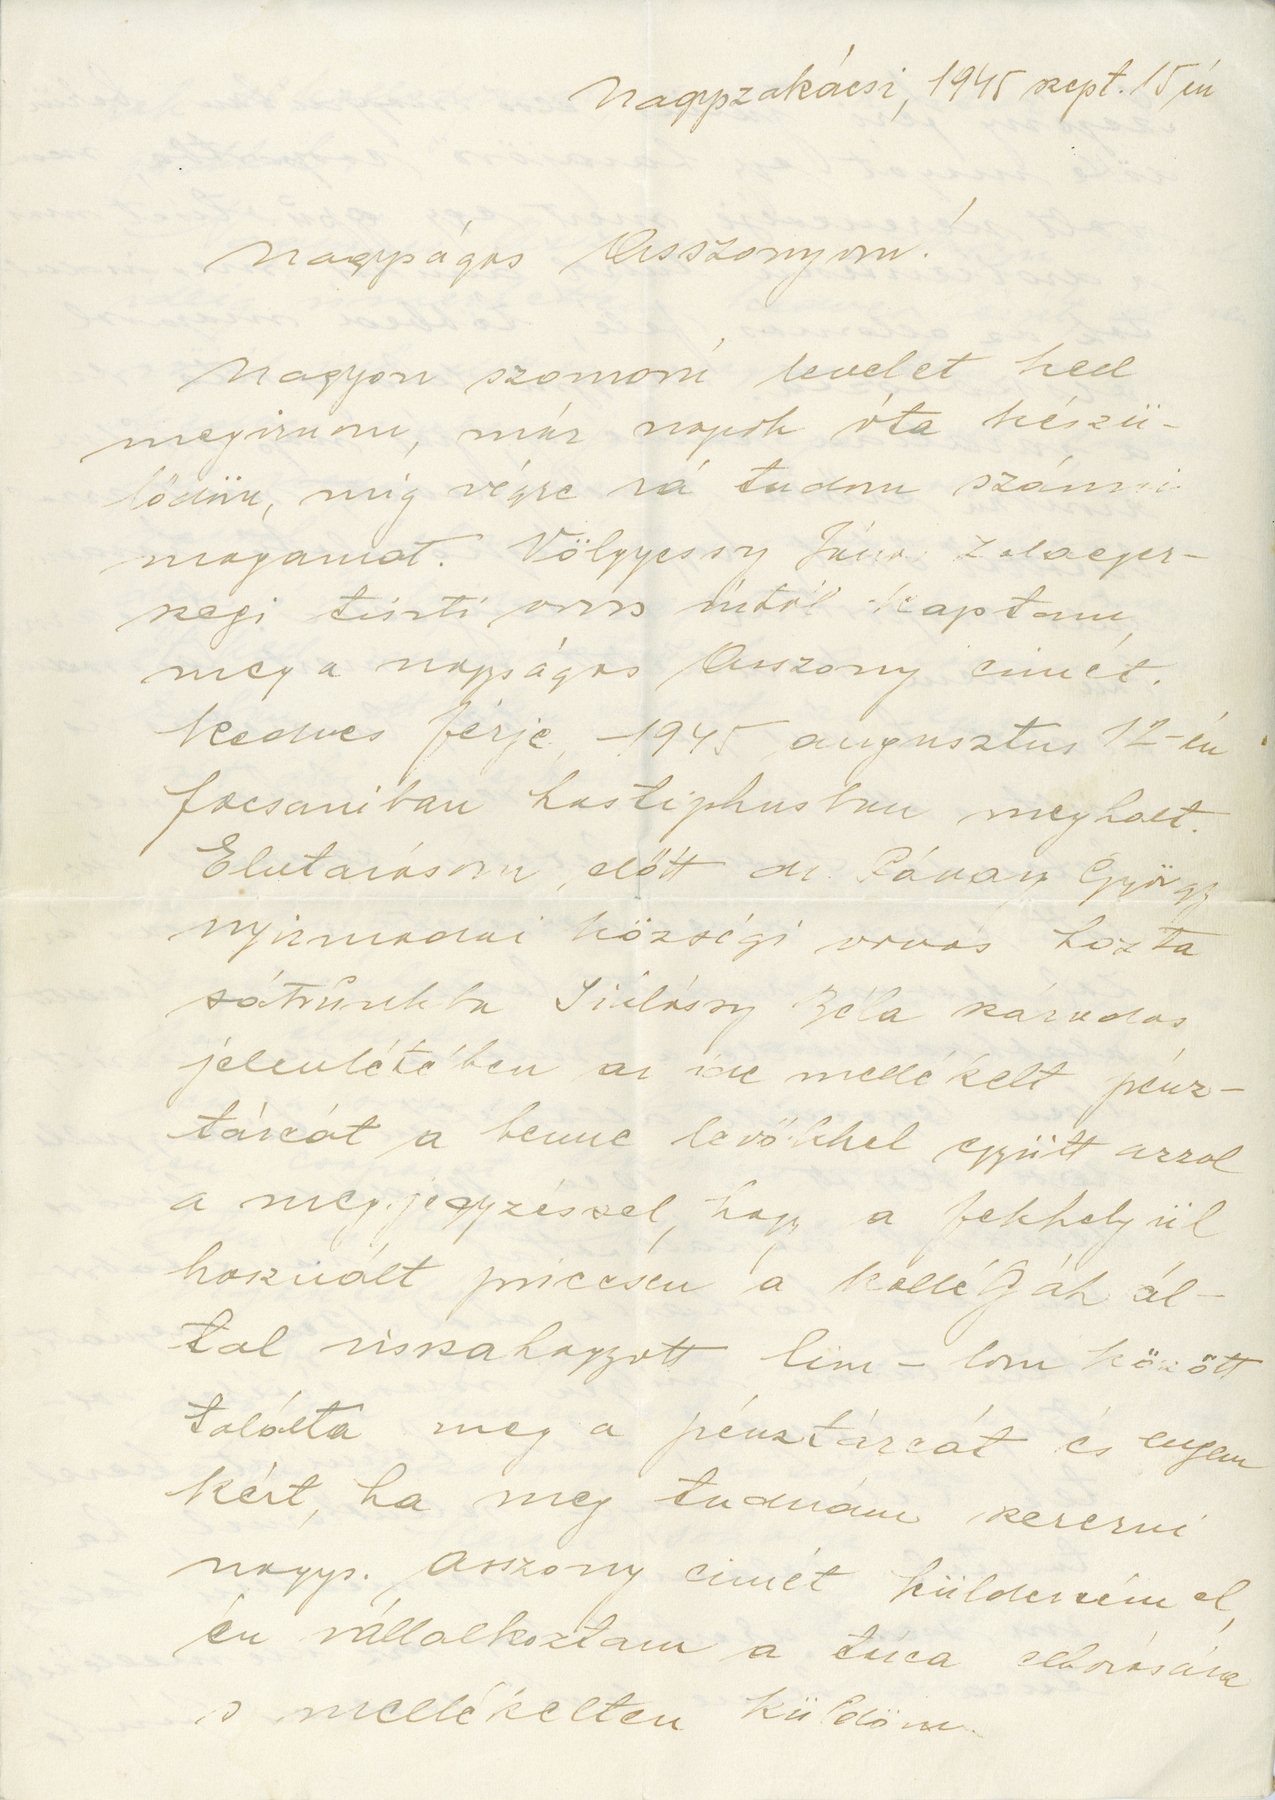 Nagyszakácsi, 1945 szept. 15 én
Nagyságos Asszonyom!
Nagyon szomorú levelet kell
megirnom, már napok óta készü-
lődöm, mig végre rá tudom szánni
magamat. Völgyessy János Zalaeger-
szegi tiszti orvos úrtól kaptam
meg a nagyságos Asszony cimét.
Kedves férje, 1945 augusztus 12-én
focsaniban hastiphusban meghalt.
Elutazásom előtt dr. György
nyirmadai községi orvos hozta
sátrunkba Béla százados
jelenlétében az ide mellékelt pénz-
tárcát a benne levőkkel együtt azzal
a megjegyzéssel, hogy a fekhelyül
használt priccsen a kollégák ál-
tal visszahagyott lim-lom között
találta meg a pénztárcát és engem
kért, ha meg tudnám szerezni
nagys. Asszony cimét küldeném el,
én vállalkoztam a tárca elhozására
s mellékelten küldöm.